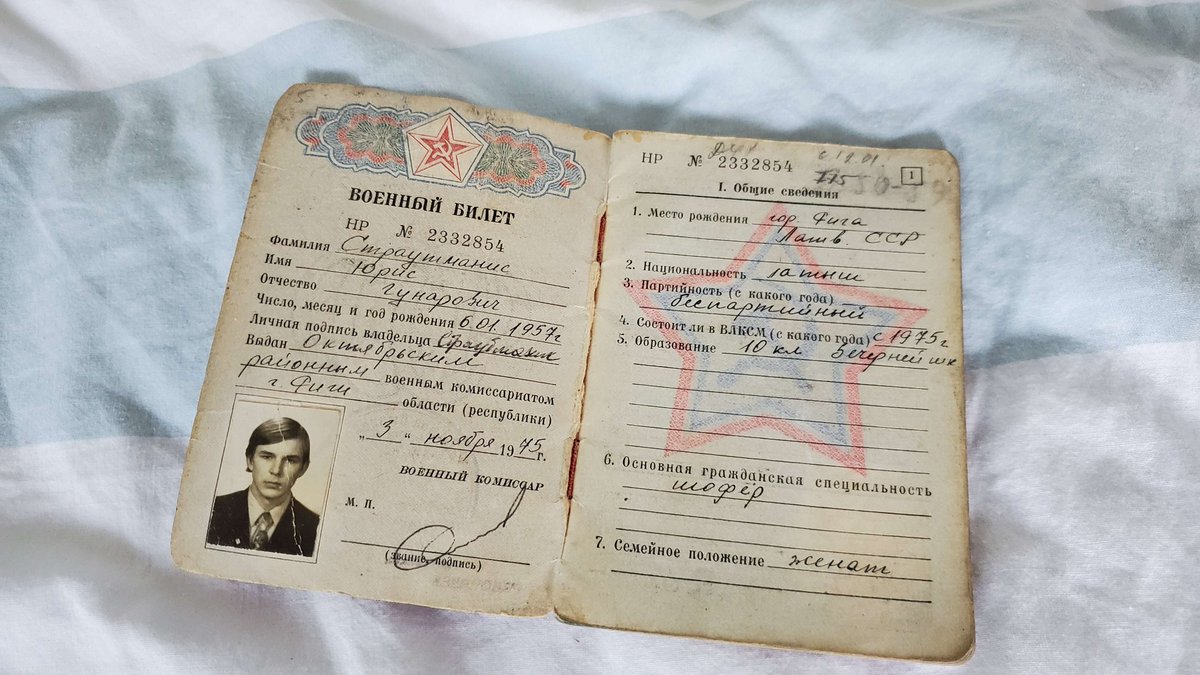 ВОЕННЫЙ БИЛЕТ
НР № 2332854
Фамилия Страутманис
Имя Юрис
Отчество Гунарович
Число, месяц и год рождения 6.01. 1957г
Личная подпись владельца Страутманис
Выдан Октябрьским
районным военным комиссариатом
г. Риги области (республики)
„ 3 “ ноября 1975 г.
ВОЕННЫЙ КОМИССАР
М. П.
(звание, подпись)
НР № 2332854
1
I. Общие сведения
1. Место рождения гор. Рига
Латв. ССР
2. Национальность латыш
3. Партийность (с какого года)
беспартийный
4. Состоит ли в ВЛКСМ (с какого года) с 1975г
5. Образование 10 кл вечерней шк
6. Основная гражданская специальность
шофёр
7. Семейное положение женат